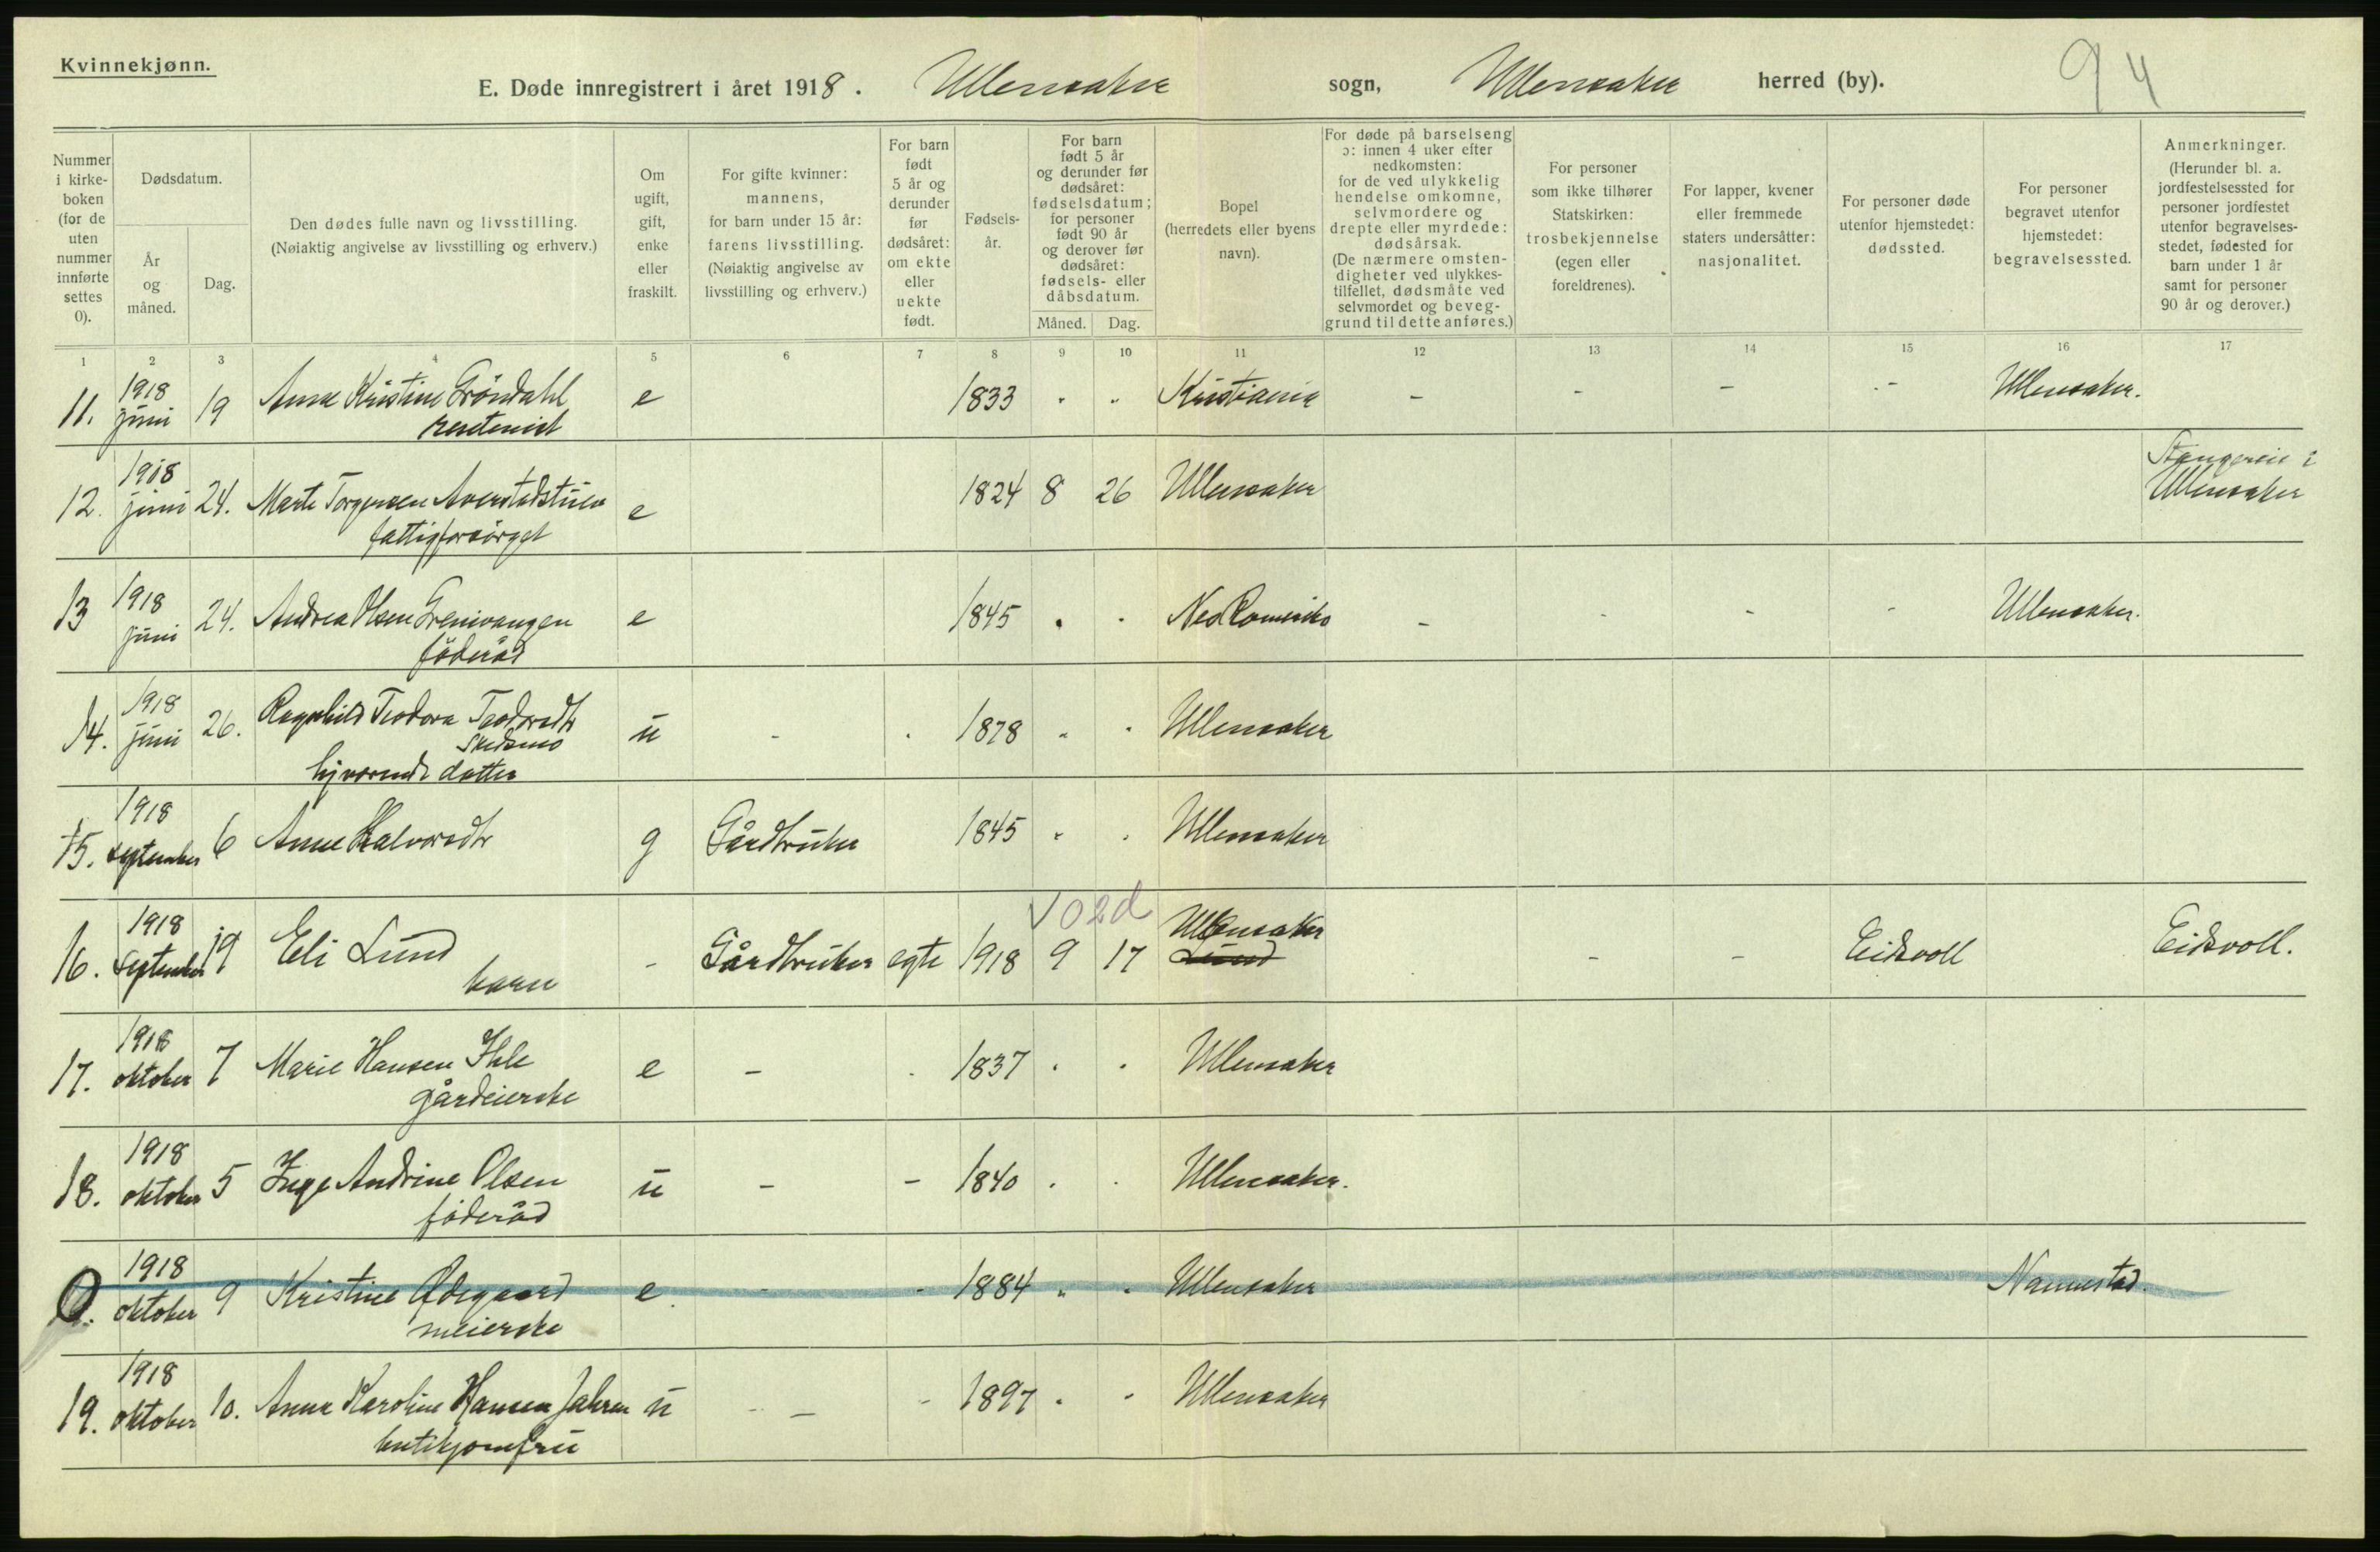 Kvinnekjønn.
E. Døde innregistrert i året 1918. Ullensaker sogn, Ullensaker herred (by). 94
Nummer i kirkeboken (for de uten nummer innførte settes 0).
Dødsdatum.
År og måned.
Dag.
Den dødes fulle navn og livsstilling.
(Nøiaktig angivelse av livsstilling og erhverv.)
Om ugift, gift, enke eller fraskilt.
For gifte kvinner: mannens, for barn under 15 år: farens livsstilling.
(Nøiaktig angivelse av livsstilling og erhverv.)
For barn født 5 år og derunder før dødsåret: om ekte eller uekte født.
Fødsels-år.
For barn født 5 år og derunder før dødsåret: fødselsdatum; for personer født 90 år og derover før dødsåret: fødsels- eller dåbsdatum.
Måned. Dag.
Bopel (herredets eller byens navn).
For døde på barselseng ɔ: innen 4 uker efter nedkomsten: for de ved ulykkelig hendelse omkomne, selvmordere og drepte eller myrdede: dødsårsak.
(De nærmere omsten-digheter ved ulykkes-tilfellet, dødsmåte ved selvmordet og beveg-grund til dette anføres.)
For personer som ikke tilhører Statskirken: trosbekjennelse (egen eller foreldrenes).
For lapper, kvener eller fremmede staters undersåtter: nasjonalitet.
For personer døde utenfor hjemstedet: dødssted.
For personer begravet utenfor hjemstedet: begravelsessted.
Anmerkninger.
(Herunder bl. a. jordfestelsessted for personer jordfestet utenfor begravelses-stedet, fødested for barn under 1 år samt for personer 90 år og derover.)
1 2 3 4 5 6 7 8 9 10 11 12 13 14 15 16 17
11. 1918 juni 19 Anna Kristine Gröndahl e 1833 " " Kristiania - - - - Ullensaker.
rentenist
12. 1918 juni 24. Marte Torgersen Averstadstuen e 1824 8 26 Ullensaker Stangereie i Ullensaker
fattigforsörget
13 1918 juni 24. Andrea Olsen Grenivangen e 1845 " " Ned Romerike - - - - Ullensaker.
föderåd
14. 1918 juni 26. Ragnhild Teodora Teodorsdtr Skedsmo ü - - 1878 " " Ullensaker
hjværende datter
15. 1918 september 6 Anne Halvorsdtr g Gårdbruker 1845 " " Ullensaker
16. 1918 September 19 Eli Lund - Gårdbruker egte 1918 9 17 Ullensaker Lund - - Eidsvoll Eidsvoll.
barn
V 02d
17. 1918 oktober 7 Marie Hansen Ihle e - - 1837 " " Ullensaker
gårdeierske
18. 1918 oktober 5 Inge Andrine Olsen ü - - 1840 " " Ullensaker.
föderåd
0. 1918 oktober 9 Kristine Ødegaard e. - - 1884 " " Ullensaker Nannestad.
meierske
19. 1918 oktober 10. Anna Karoline Hansen Jahren ü - - 1897 " " Ullensaker
butikjomfru